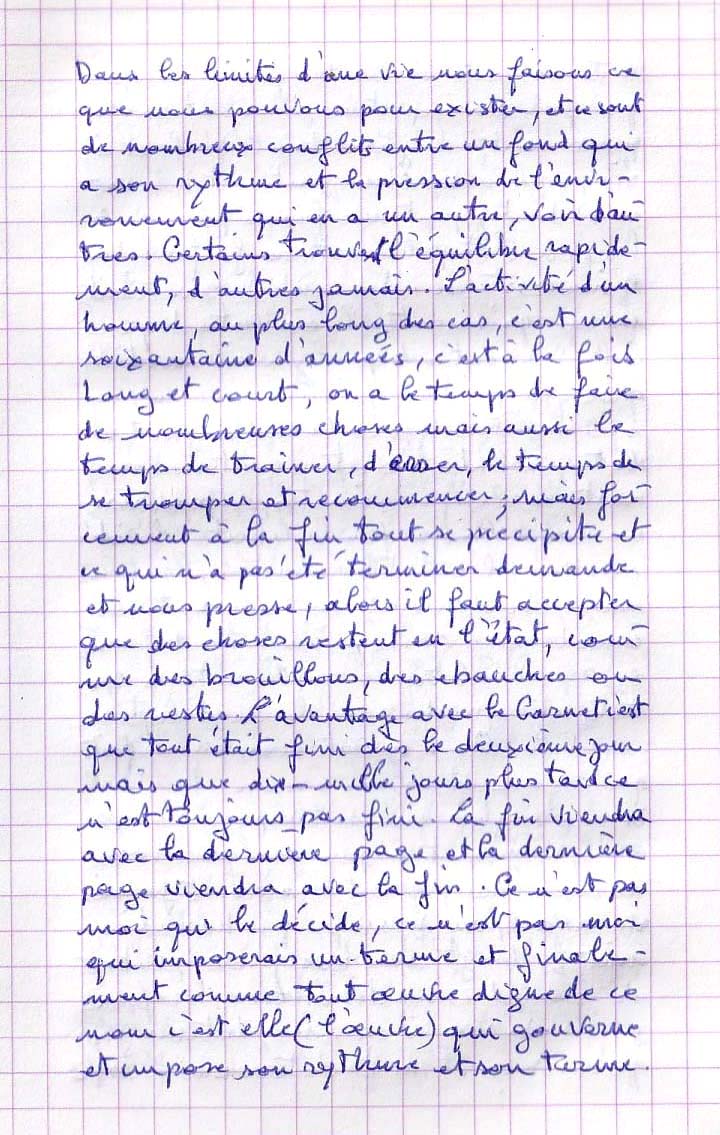 Dans les limites d'une vie nous faisons ce
que nous pouvons pour exister, et ce sont
de nombreux conflits entre un fond qui
a son rythme et la pression de l'envi-
ronnement qui en a un autre, voir d'au
tres. Certains trouvent l'équilibre rapide-
ment, d'autres jamais. L'activité d'un
homme, au plus long des cas, c'est une
soixantaine d'années, c'est à la fois
Long et court, on a le temps de faire
de nombreuses choses mais aussi le
temps de trainer, d'errer, le temps de
se tromper et recommencer; mais for
cement à la fin tout se précipite et
ce qui n'a pas été terminer demande
et nous presse, alors il faut accepter
que des choses restent en l'état, com
me des brouillons, des ebauches ou
des restes. L'avantage avec le Carnet c'est
que tout était fini dès le deuxième jour
mais que dix-mille jours plus tard ce
n'est toujours pas fini. La fin viendra
avec la dernière page et la dernière
page viendra avec la fin. Ce n'est pas
moi qui le décide, ce n'est pas moi
qui imposerais un terme et finale-
ment comme tout œuvre digne de ce
nom c'est elle (l'œuvre) qui gouverne
et impose son rythme et son terme.